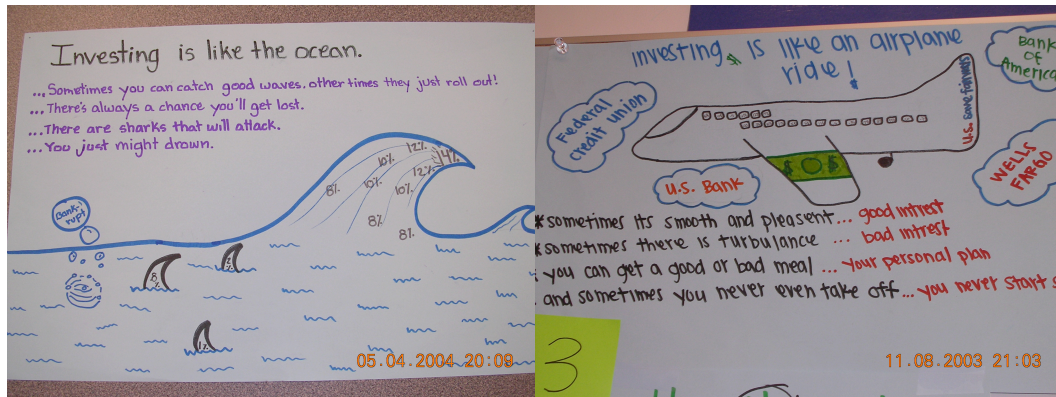 Investing is like the ocean.
...Sometimes you can catch good waves, other times they just roll out!
...There's always a chance you'll get lost.
...There are sharks that will attack.
...You just might drown.
12% 14%
10% 12%
8% 10% 10%
8%
8%
Bank-
rupt
8%
1%
05.04.2004 20:09
investing is like an airplane
ride!
Bank
of
America
Federal
credit union
U.S. Save fairways
$ O $
U.S. Bank
WELLS
FARGO
*sometimes its smooth and pleasent... good intrest
*sometimes there is turbulance ... bad intrest
you can get a good or bad meal ... your personal plan
and sometimes you never even take off... you never start
3
11.08.2003 21:03